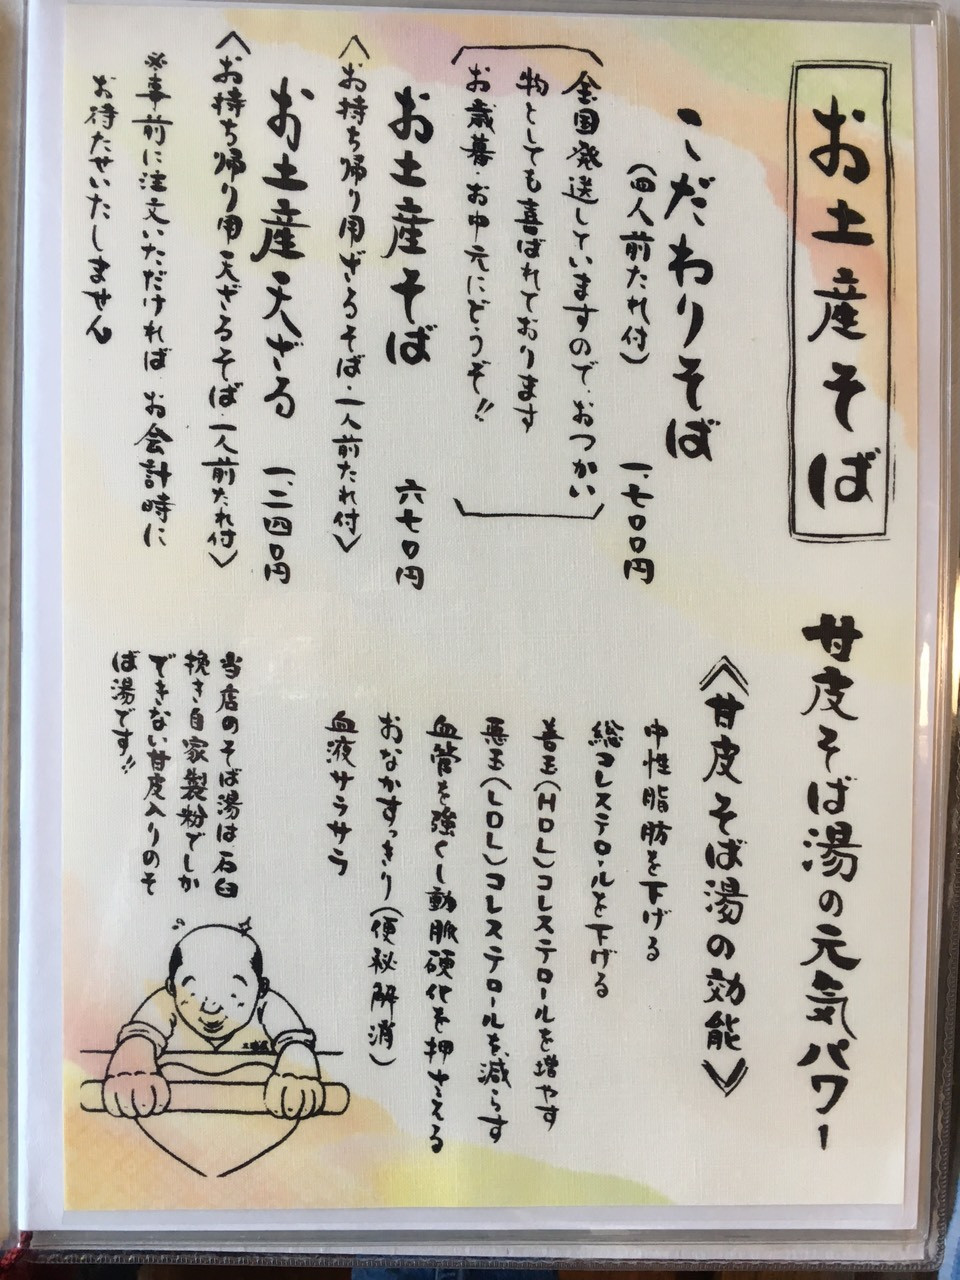 お土産そば
こだわりそば
(四人前たれ付)
一、七〇〇円
全国発送していますので、おつかい
物としても喜ばれております
お歳暮・お中元にどうぞ!!
お土産そば
六七〇円
〈お持ち帰り用ざるそば・一人前たれ付〉
お土産天ざる
一、二四〇円
〈お持ち帰り用天ざるそば・一人前たれ付〉
※事前に注文いただければ、お会計時に
お待たせいたしません
甘皮そば湯の元気パワー
《甘皮そば湯の効能》
中性脂肪を下げる
総コレステロールを下げる
善玉(HDL)コレステロールを増やす
悪玉(LDL)コレステロールを減らす
血管を強くし動脈硬化を押さえる
おなかすっきり(便秘解消)
血液サラサラ
当店のそば湯は石臼
挽き自家製粉でしか
できない甘皮入りのそ
ば湯です!!